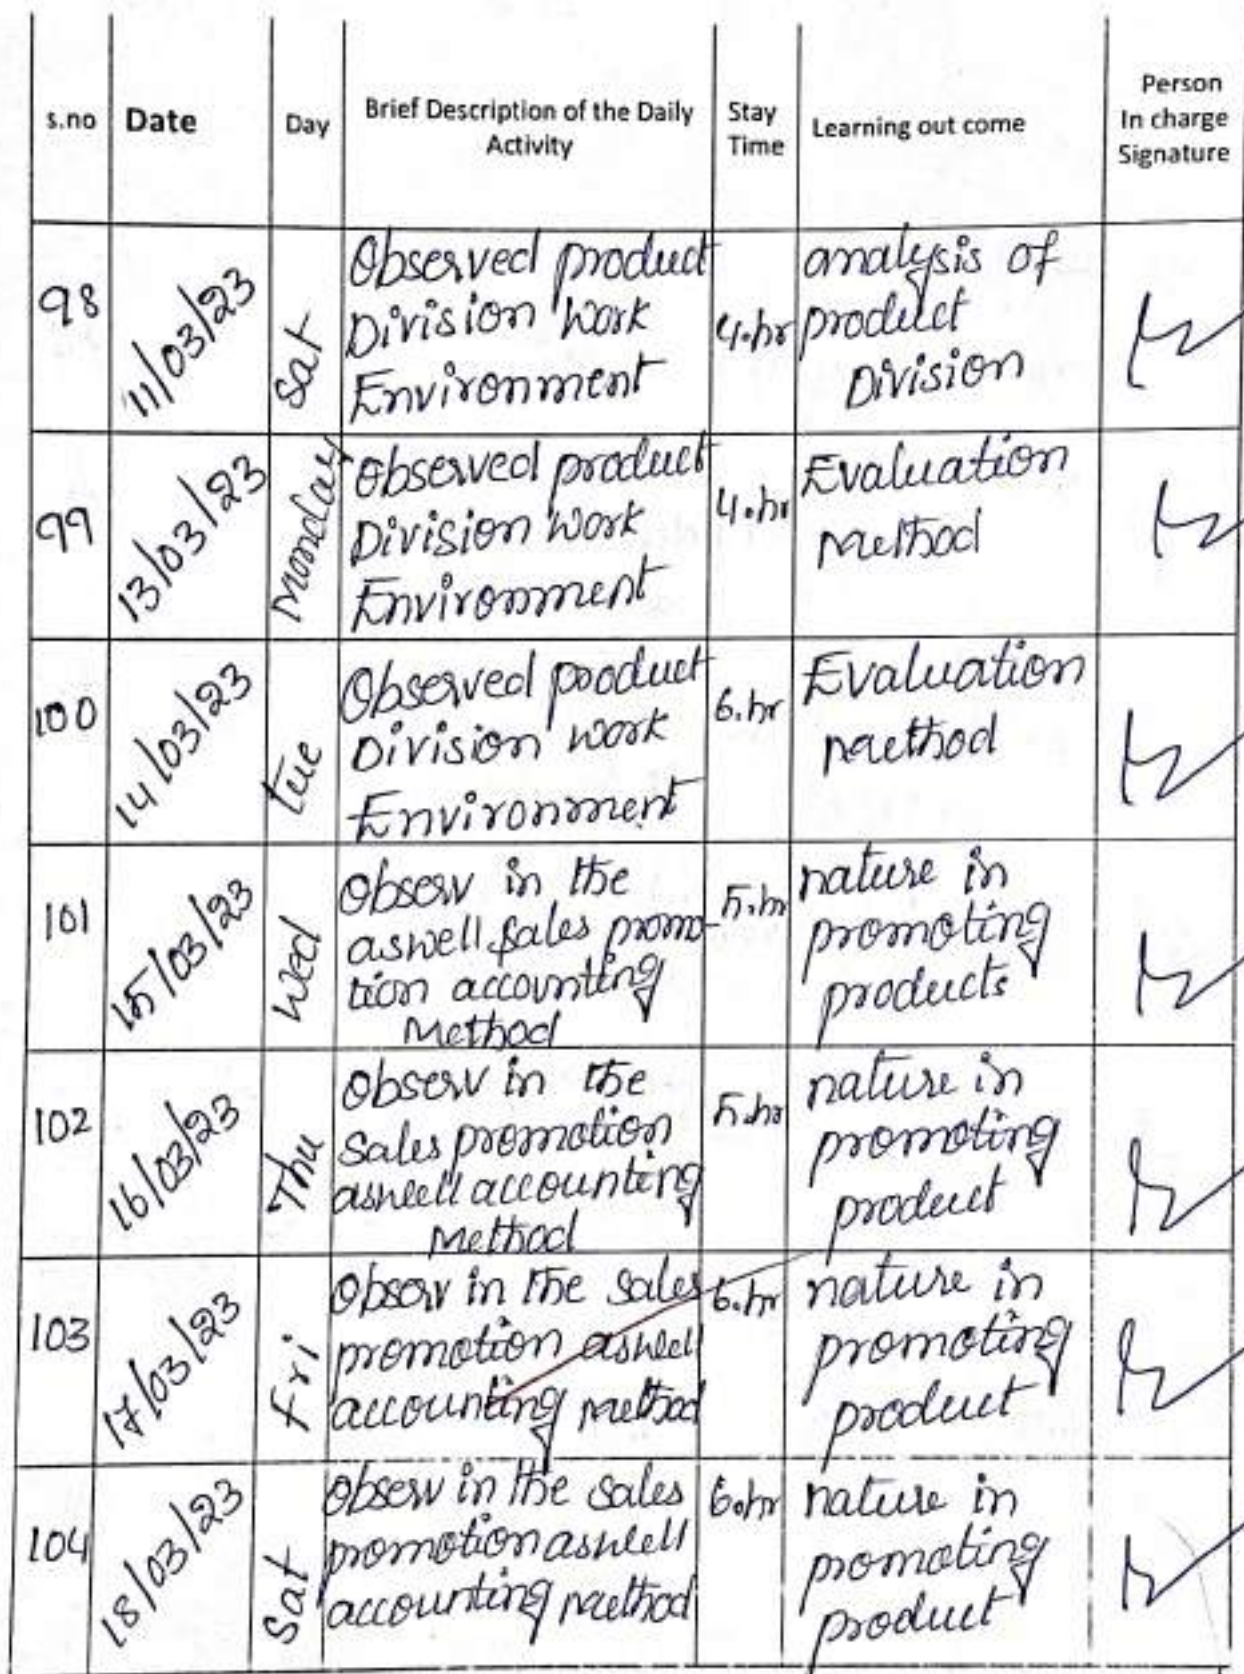 s.no Date Day Brief Description of the Daily Activity Stay Time Learning out come Person In charge Signature
98 11/03/23 Sat Observed product Division Work Environment 4.hr analysis of product Division
99 13/03/23 Monday Observed product Division Work Environment 4.hr Evaluation Method
100 14/03/23 tue Observed product Division work Environment 6.hr Evaluation Method
101 15/03/23 Wed Observ in the aswell sales promotion accounting Method 5.hr nature in promoting products
102 16/03/23 Thu Observ in the Sales promotion aswell accounting Method 5.hr nature in promoting product
103 17/03/23 Fri Observ in the sales promotion aswell accounting Method 6.hr nature in promoting product
104 18/03/23 Sat Observ in the sales promotion aswell accounting Method 6.hr nature in promoting product